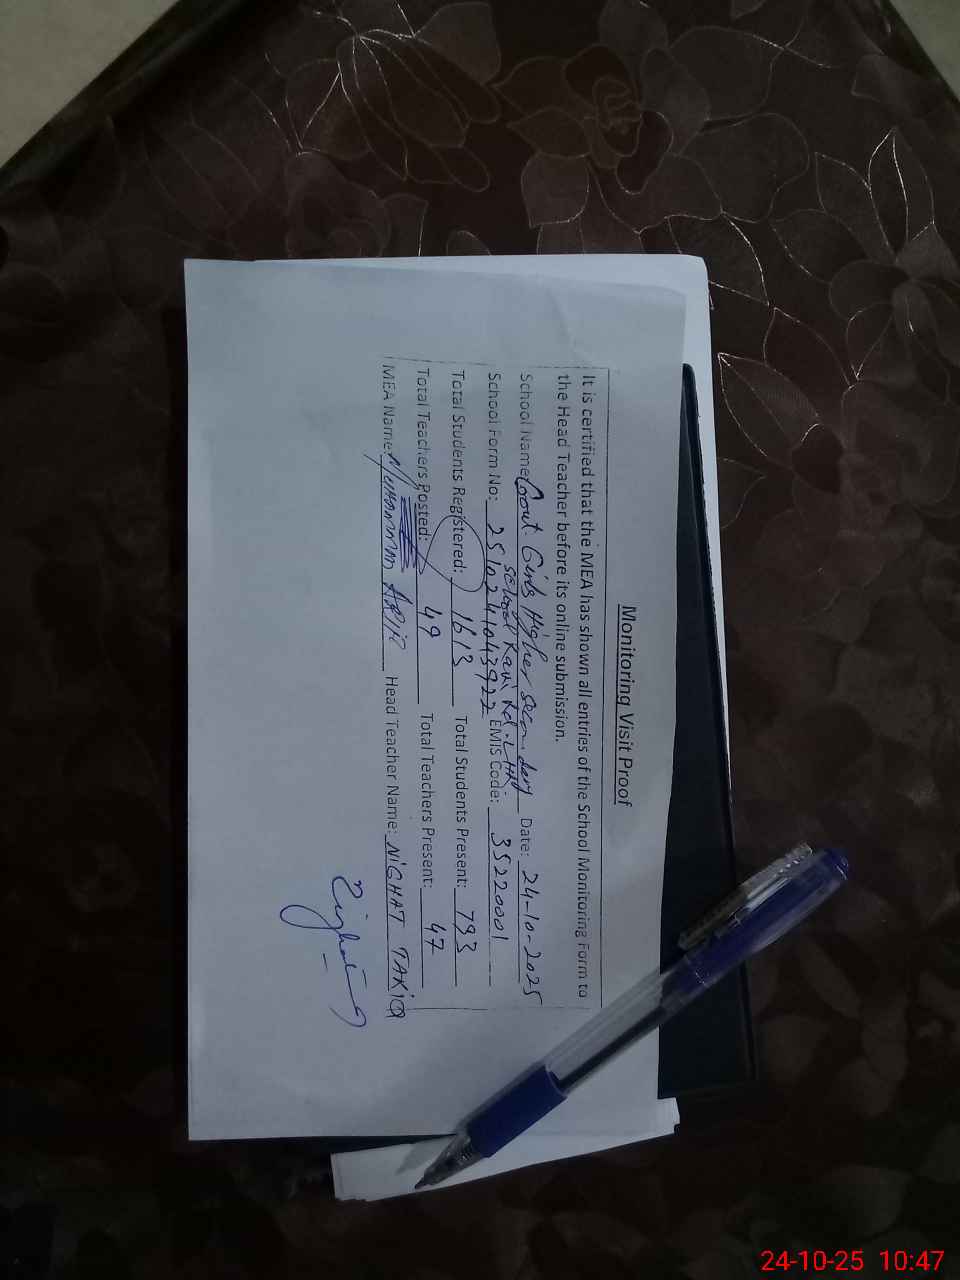 Monitoring Visit Proof
It is certified that the MEA has shown all entries of the School Monitoring Form to
the Head Teacher before its online submission.
School Name: Govt. Girls Higher Secondary Date: 24-10-2025
School Ravi Rd. LHR
School Form No: 2510241043922 EMIS Code: 35220001
Total Students Registered: 1613 Total Students Present: 793
Total Teachers Posted: 49 Total Teachers Present: 47
MEA Name: MUHAMMAD Head Teacher Name: NIGHAT
Nighat
24-10-25 10:47